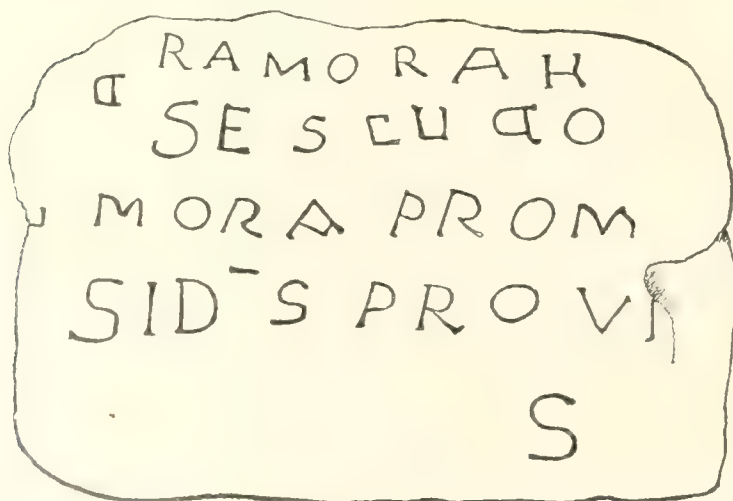 RAMORAH
D SESCUDO
MORA PROM
SID¯S PROVI
S